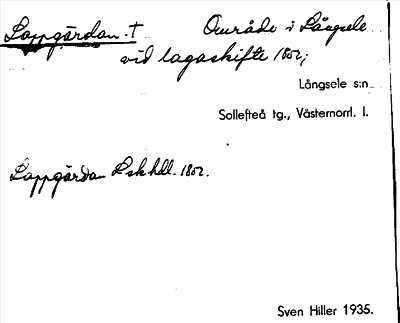 Lappgärdan. † Område i Långsele
vid lagaskifte 1802;
Långsele s:n
Sollefteå tg., Västernorrl. l.
Lappgärdan Lskhdl. 1802.
Sven Hiller 1935.